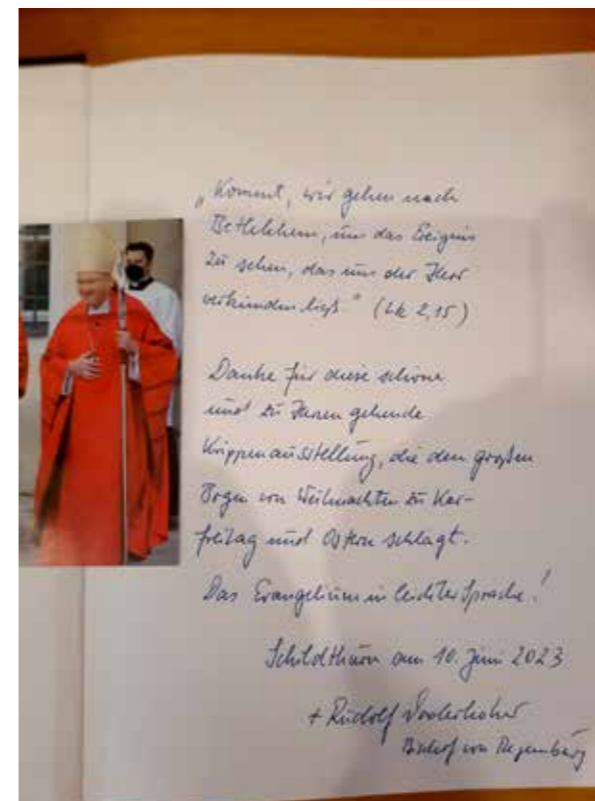 „Kommt, wir gehen nach
Bethlehem, um das Ereignis
zu sehen, das uns der Herr
verkünden ließ“ (Lk 2,15)
Danke für diese schöne
und zu Herzen gehende
Krippenausstellung, die den großen
Bogen von Weihnachten zu Kar-
freitag und Ostern schlägt.
Das Evangelium in leichter Sprache!
Schildthurn am 10. Juni 2023
+ Rudolf Voderholzer
Bischof von Regensburg